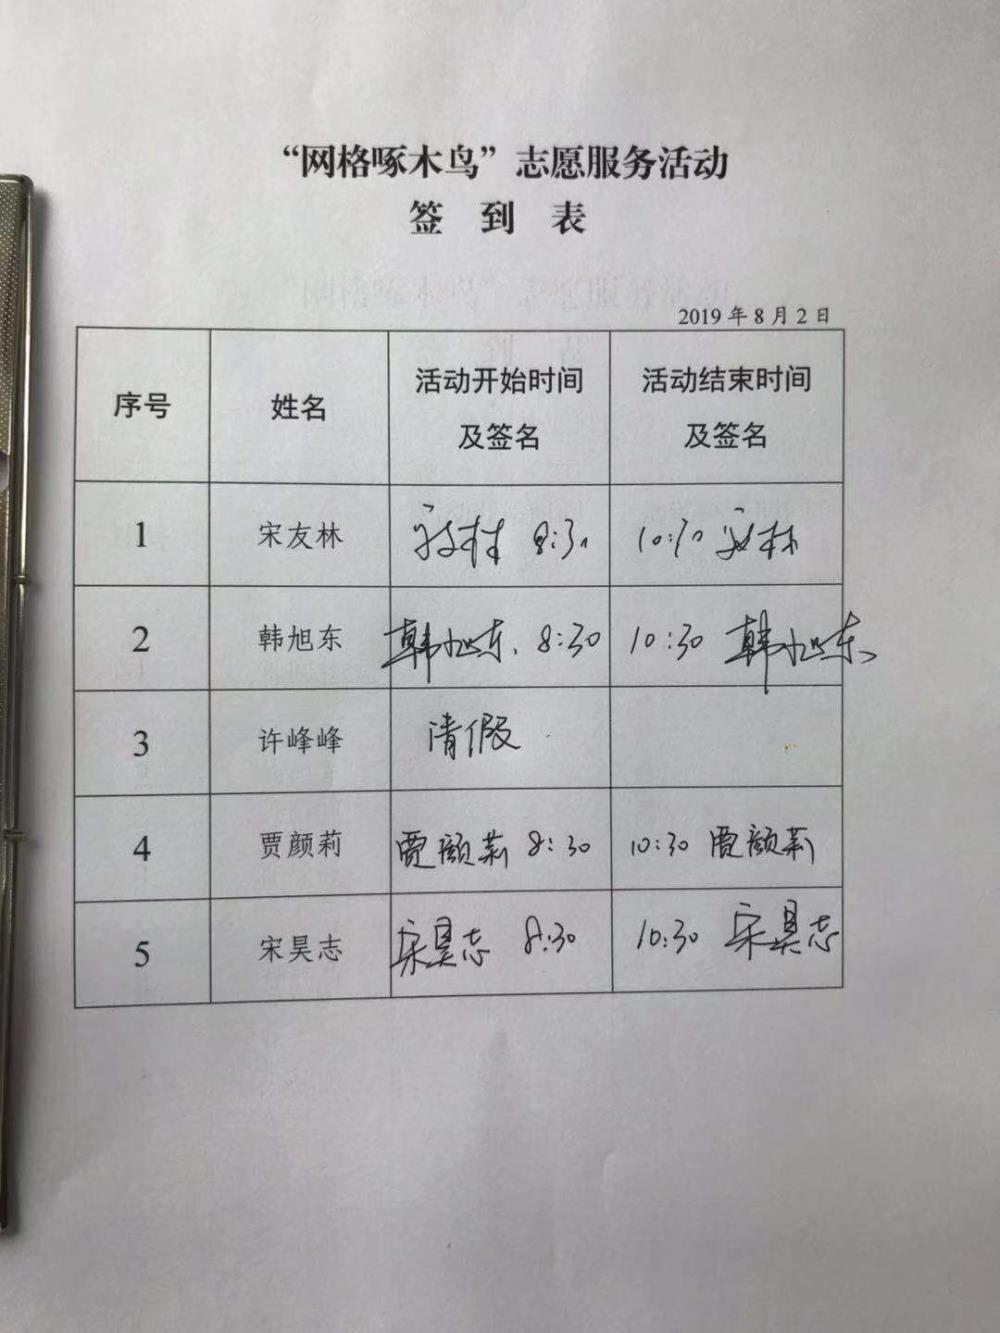 “网格啄木鸟”志愿服务活动
签 到 表
2019年8月2日
序号 姓名 活动开始时间及签名 活动结束时间及签名
1 宋友林 宋友林 8:30 10:30 宋友林
2 韩旭东 韩旭东 8:30 10:30 韩旭东
3 许峰峰 请假
4 贾颜莉 贾颜莉 8:30 10:30 贾颜莉
5 宋昊志 宋昊志 8:30 10:30 宋昊志